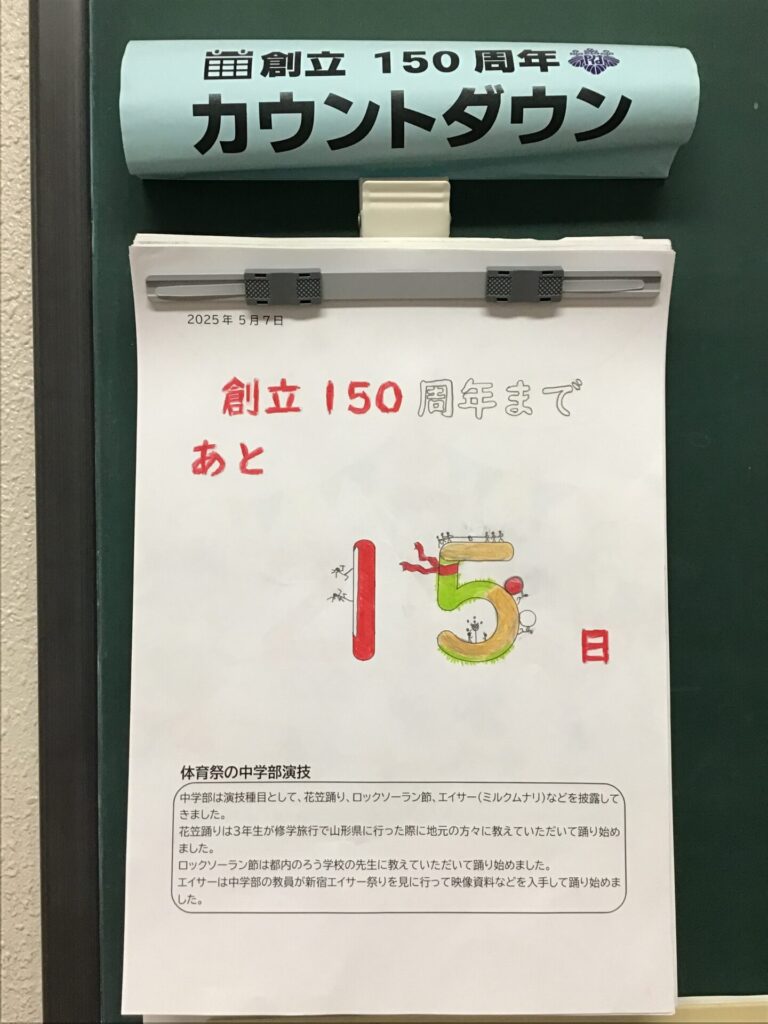 創立 150 周年
カウントダウン
2025年 5月7日
創立150周年まで
あと
15
日
体育祭の中学部演技
中学部は演技種目として、花笠踊り、ロックソーラン節、エイサー(ミルクムナリ)などを披露して
きました。
花笠踊りは3年生が修学旅行で山形県に行った際に地元の方々に教えていただいて踊り始め
ました。
ロックソーラン節は都内のろう学校の先生に教えていただいて踊り始めました。
エイサーは中学部の教員が新宿エイサー祭りを見に行って映像資料などを入手して踊り始めま
した。